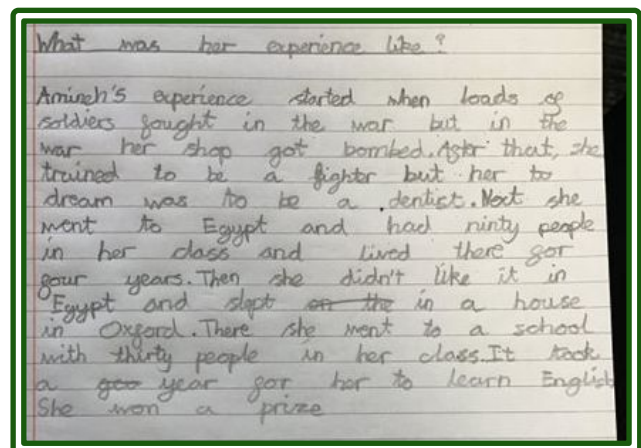 What was her experience like?
Amineh's experience started when loads of
soldiers fought in the war but in the
war her shop got bombed. After that, she
trained to be a fighter but her to
dream was to be a dentist. Next she
went to Egypt and had ninty people
in her class and lived there for
four years. Then she didn't like it in
Egypt and slept on the in a house
in Oxford. There she went to a school
with thirty people in her class. It took
a year for her to learn English
She won a prize